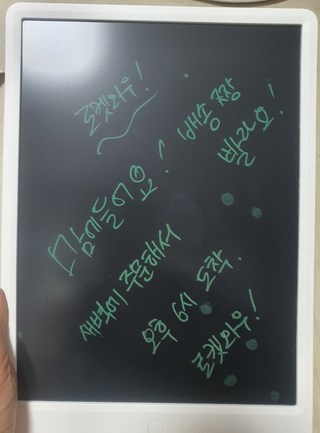 로켓와우!
배송 짱
빨라요!
맘에들어요
새벽에 주문해서
오후 6시 도착.
로켓와우!